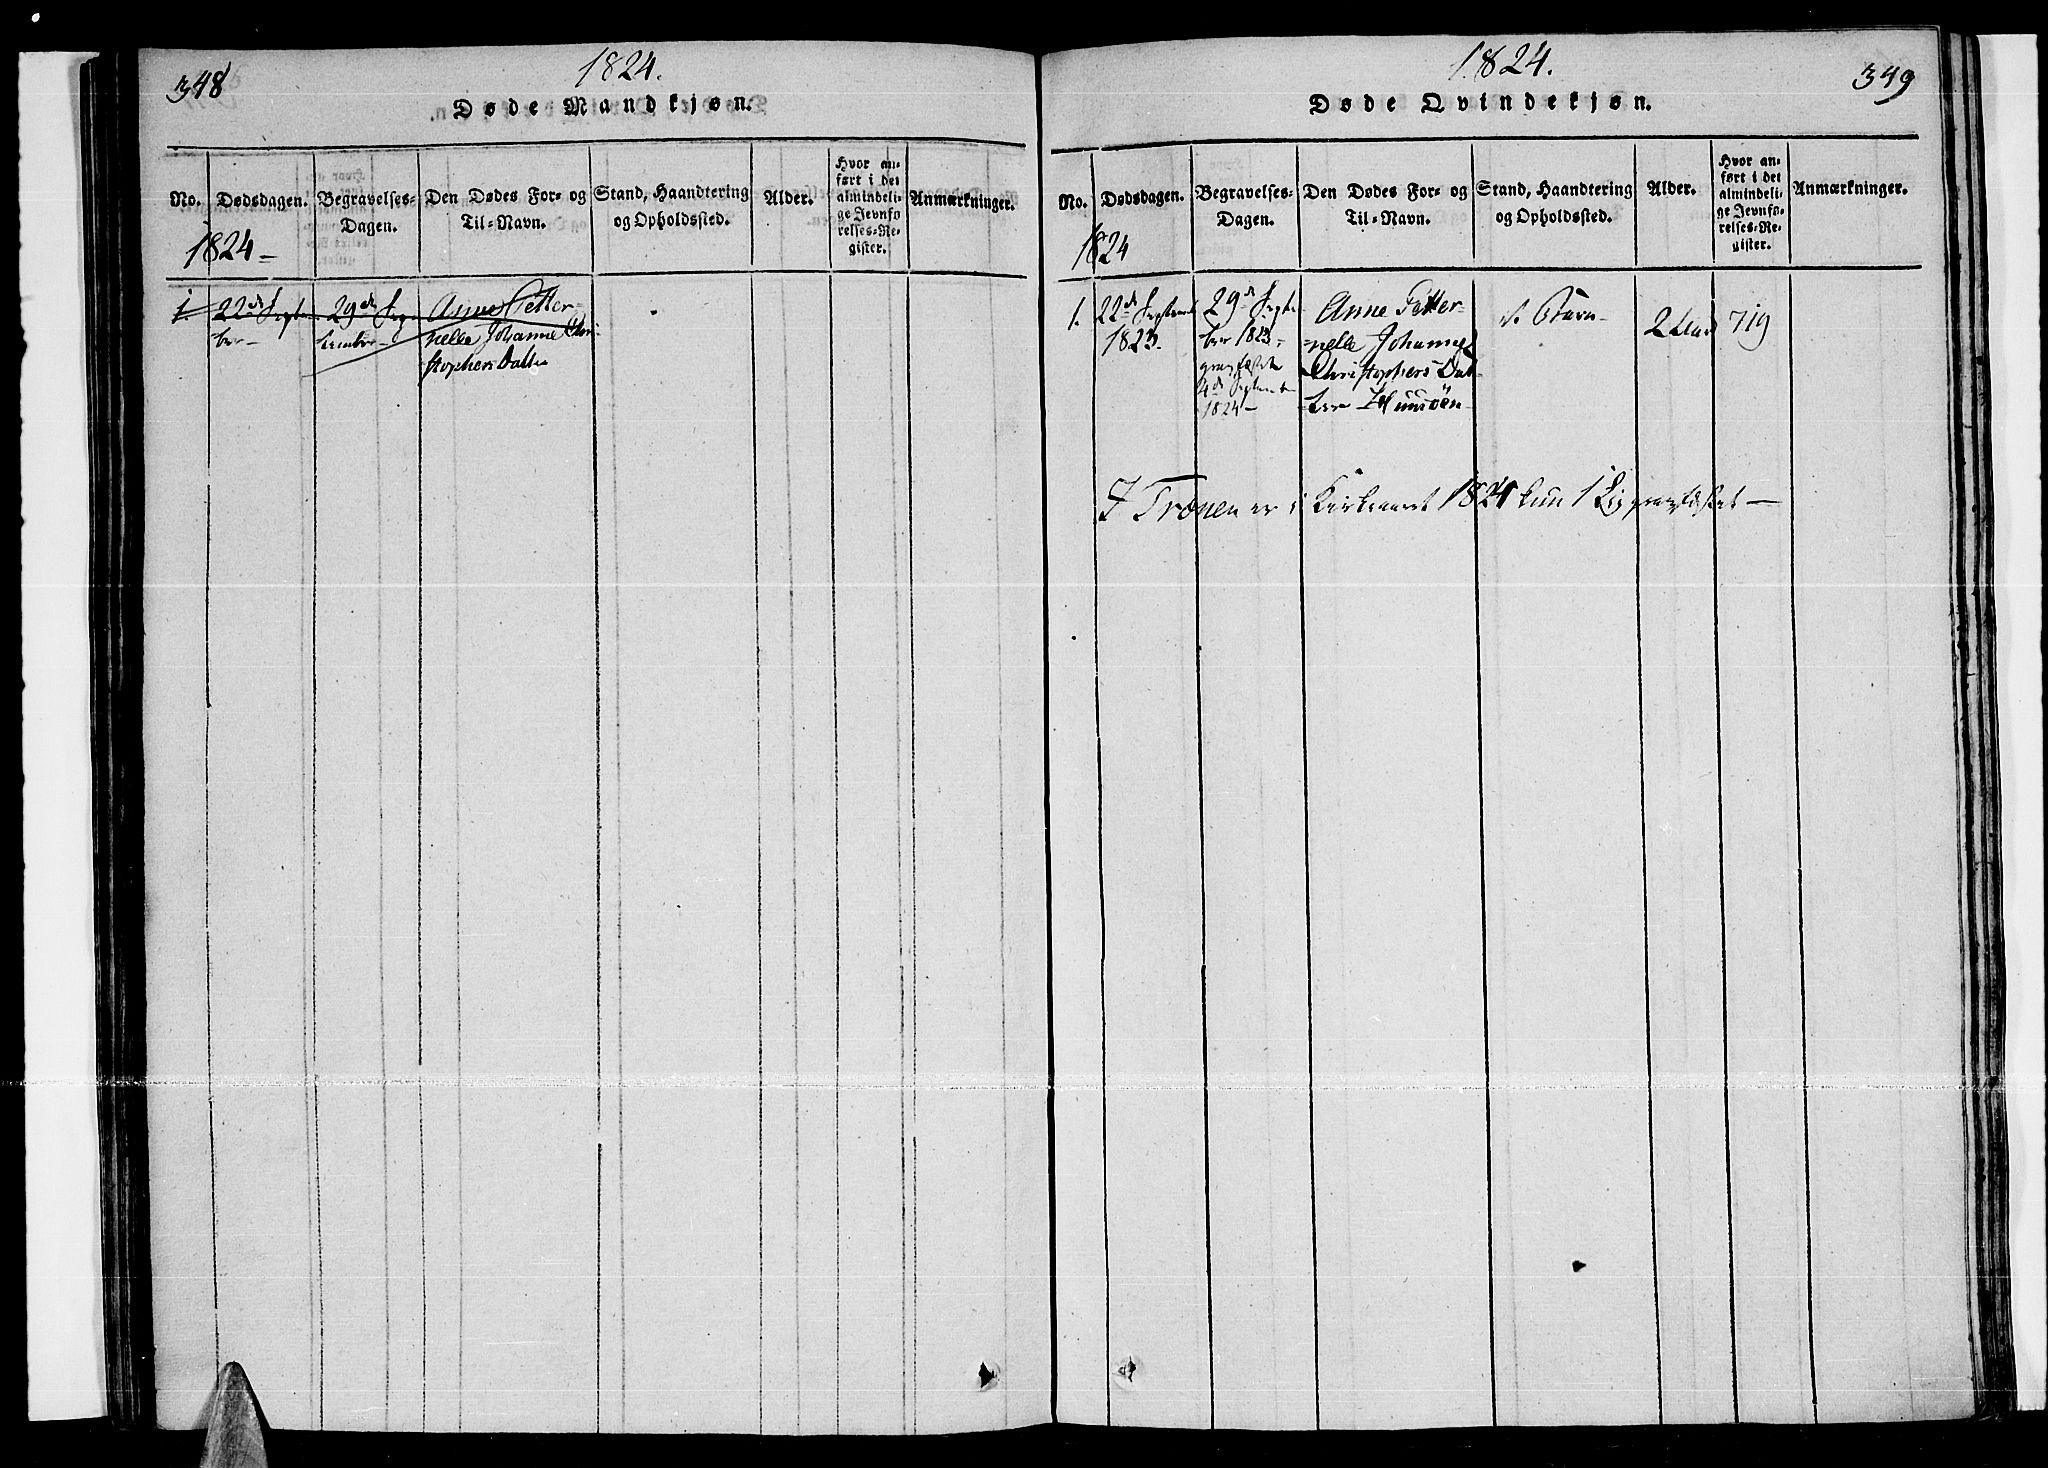 348
1824.
Døde Mandkjøn.
No.
Dødsdagen.
Begravelses-
Dagen.
Den Dødes For- og
Til-Navn.
Stand, Haandtering
og Opholdssted.
Alder.
Hvor an-
ført i det
almindeli-
ge Jevnfø
relses-Re-
gister.
Anmærkninger.
1824-
1.
22de Septem
ber-
29de Sep-
tember-
Anne Petter-
nelle Johanne Chri-
stophers Datter
1824.
349
Døde Qvindekjøn.
No.
Dødsdagen.
Begravelses-
Dagen.
Den Dødes For- og
Til-Navn.
Stand, Haandtering
og Opholdssted.
Alder.
Hvor an-
ført i det
almindeli-
ge Jevnfø-
relses-Re-
gister.
Anmærkninger.
1824
1.
22de Septemb
1823.
29de Septem
ber 1823-
gravfæstet
4de Septemb
1824-
Anne Petter-
-nelle Johanne
Christophers Dat-
-ter
Barn-
2
719
I Trænen er i Kirkeaaret 1824 kun 1 Lig gravfæstet-